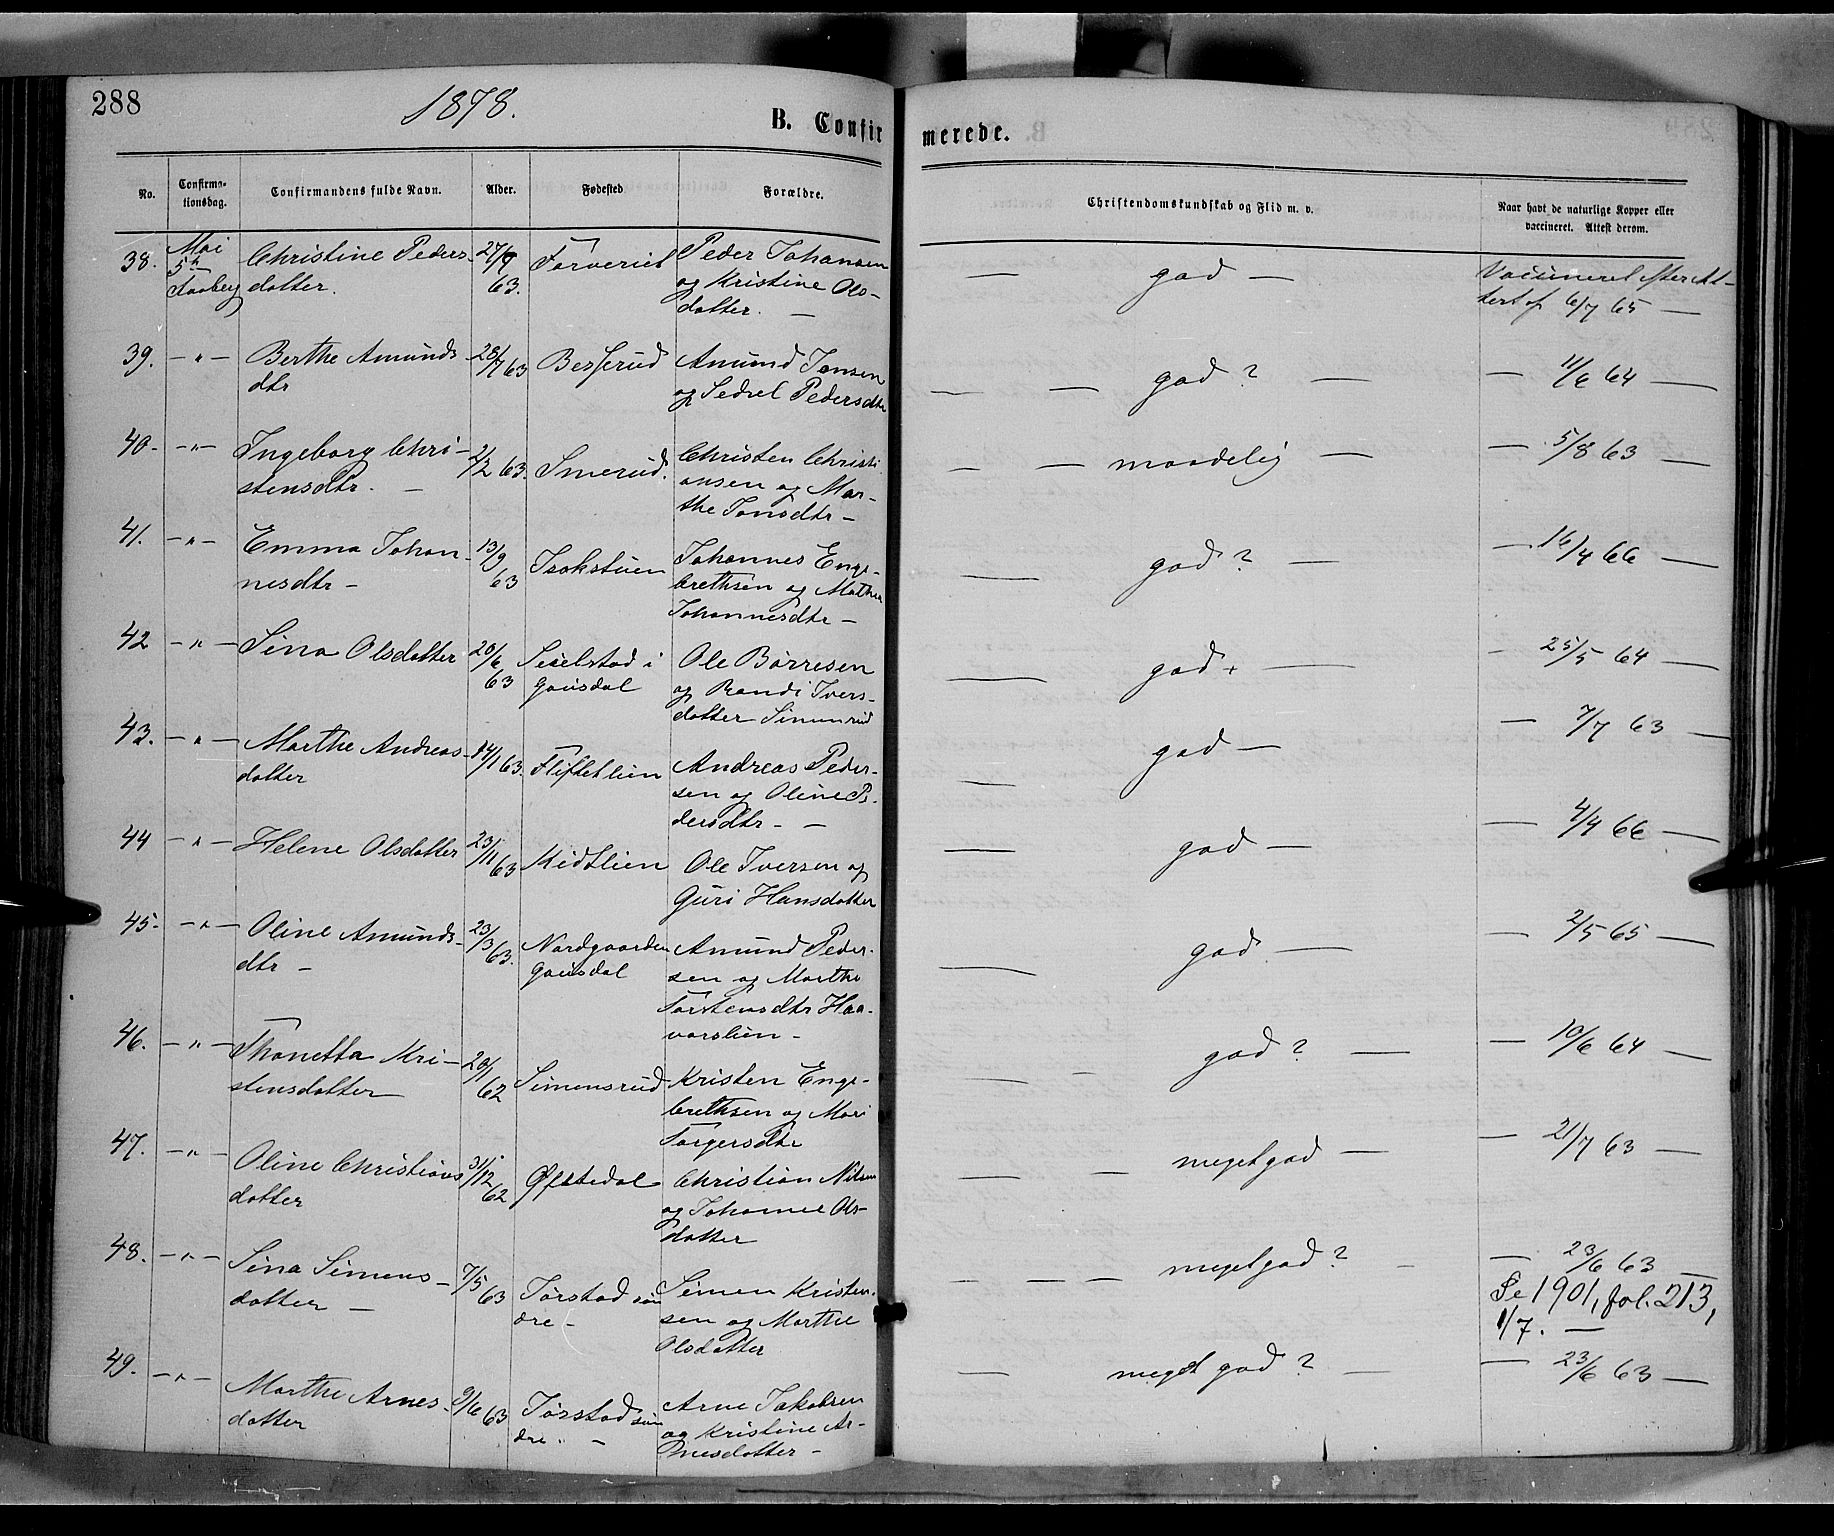 288
1878.
B. Confirmerede.
No.
Confirma-
tionsdag.
Confirmandens fulde Navn.
Alder.
Fødested
Forældre.
Christendomskundskab og Flid m. v.
Naar havt de naturlige Kopper eller
vaccineret. Attest derom.
38. Mai 5te Faaberg
Christine Peders-
dotter.
27/9 63.
Peder Johansen
og Kristine Ols-
dotter. —
— god —
Vaccineret efter At-
test af 6/7 65 —
39. — " —
Berthe Amunds
dtr
28/7 63
Amund Jensen
og Sedsel Pedersdtr
— — god? —
— 11/6 64 —
40. — " —
Ingeborg Chri-
stensdtr. —
2/2 63.
Smerud.
Christen Christi
ansen og Mar-
the Jonsdtr —
— — maadelig —
— 5/8 63 —
41. — " —
Emma Johan-
nesdtr —
13/9 63
Isakstuen
Johannes Enge-
brethsen og Mathea
Johannesdtr —
— god? —
— 16/4 66 —
42 — " —
Sina Olsdotter
20/6 63
i
Gausdal
Ole Børresen
og Randi Ivers-
dotter Simenrud
— god + —
— 25/5 64 —
43. — " —
Marthe Andreas-
dotter
14/1 63.
Andreas Peder-
sen og Oline Pe-
dersdtr — —
— god —
— 7/7 63 —
44 — " —
Helene Olsdotter
23/11 63
Midtlien
Ole Iversen og
Guri Hansdotter
— god —
— 4/4 66 —
45. — " —
Oline Amunds-
dtr —
23/3 63.
Nordgaarden
Gausdal
Amund Peder-
sen og Marthe
Torstensdtr Haa-
varslien —
— god —
— 2/5 65 —
46. — " —
Thonetta Kri-
stensdotter
20/1 62
Simensrud
Kristen Enge-
brethsen og Mari
Torgersdtr
— — god? —
— 10/6 64 —
47. — " —
Oline Christians
dotter
31/12 62
Øfstedal
Christian Nilsen
og Johanne Ols-
dotter
— — meget god —
— 21/7 63 —
48. — " —
Sina Simens-
dotter —
7/5 63
Jørstad søn
dre —
Simen Kristen-
sen og Marthe
Olsdotter
— — — meget god? —
— 23/6 63 —
Se 1901, fol. 213,
1/7. —
49. — " —
Marthe Arnes-
dotter
9/6 63
Jørstad søn
dre. —
Arne Jakobsen
og Kristine Ar-
nesdotter —
— meget god? —
— 23/6 63 —